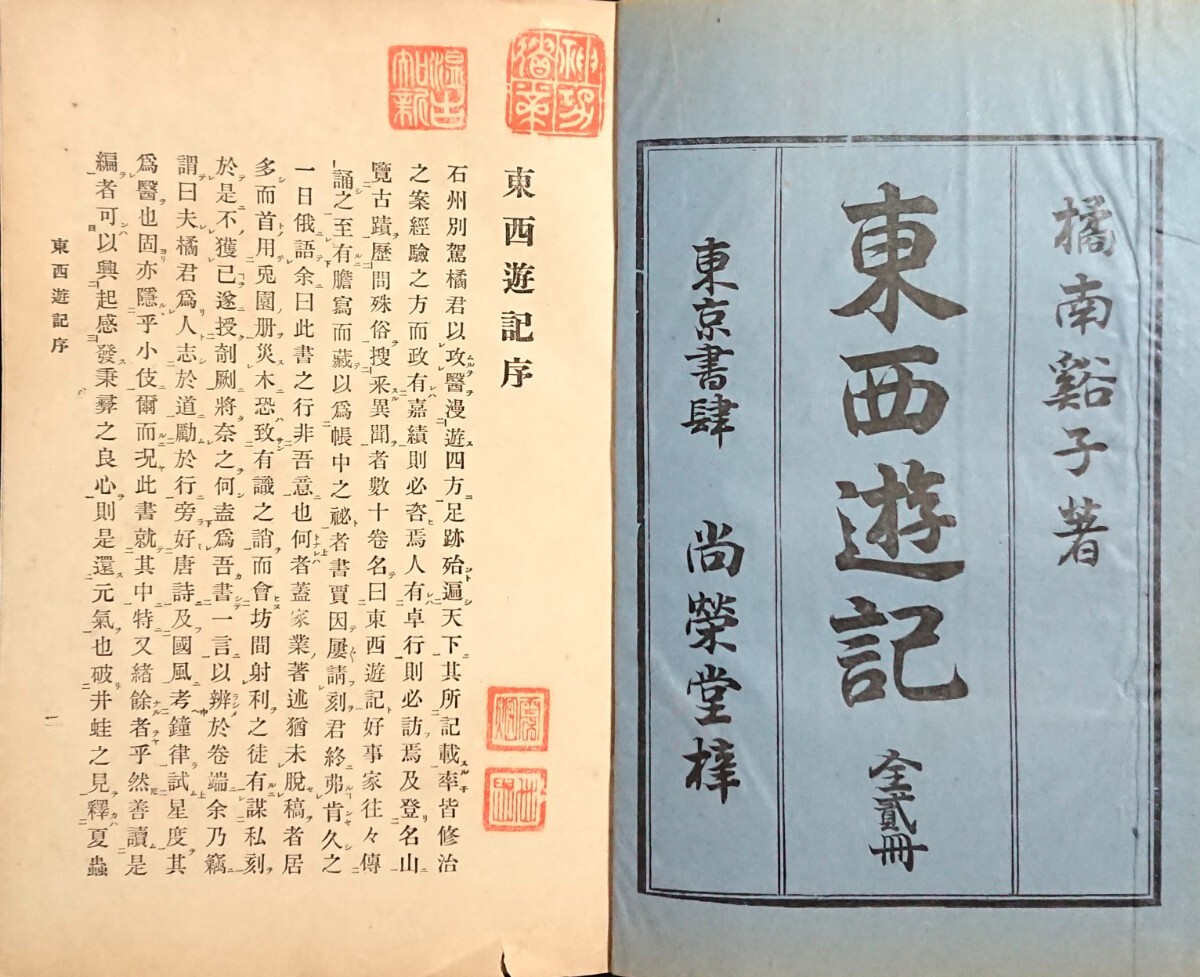 橘南谿子著
東西遊記
全貳冊
東京書肆　尚榮堂梓
東西遊記序
石州別駕橘君以攻醫漫遊四方足跡殆遍天下其所記載率皆修治
之案經驗之方而政有嘉績則必咨焉人有卓行則必訪焉及登名山
覽古蹟歷問殊俗搜釆異聞者數十卷名曰東西遊記好事家往々傳
誦之至有謄寫而藏以爲帳中之祕者書賈因屢請刻君終弗肯久之
一日俄語余曰此書之行非吾意也何者蓋家業著述猶未脫稿者居
多而首用兎園册災木恐致有識之誚而會坊間射利之徒有謀私刻
於是不獲已遂授剞劂將奈之何盍爲吾書一言以辨於卷端余乃竊
謂曰夫橘君爲人志於道勵於行旁好唐詩及國風考鐘律試星度其
爲醫也固亦隱乎小伎爾而况此書就其中特又緒餘者乎然善讀是
編者可以興起感發秉彛之良心則是還元氣也破井蛙之見釋夏蟲
東西遊記序
一
溫古知新